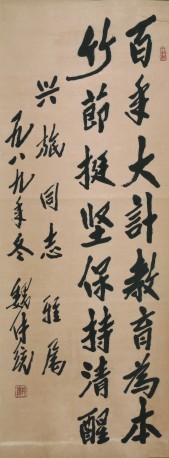 百年大计教育為本
竹節挺坚保持清醒
兴旅同志雅属
一九八九年冬
魏传统